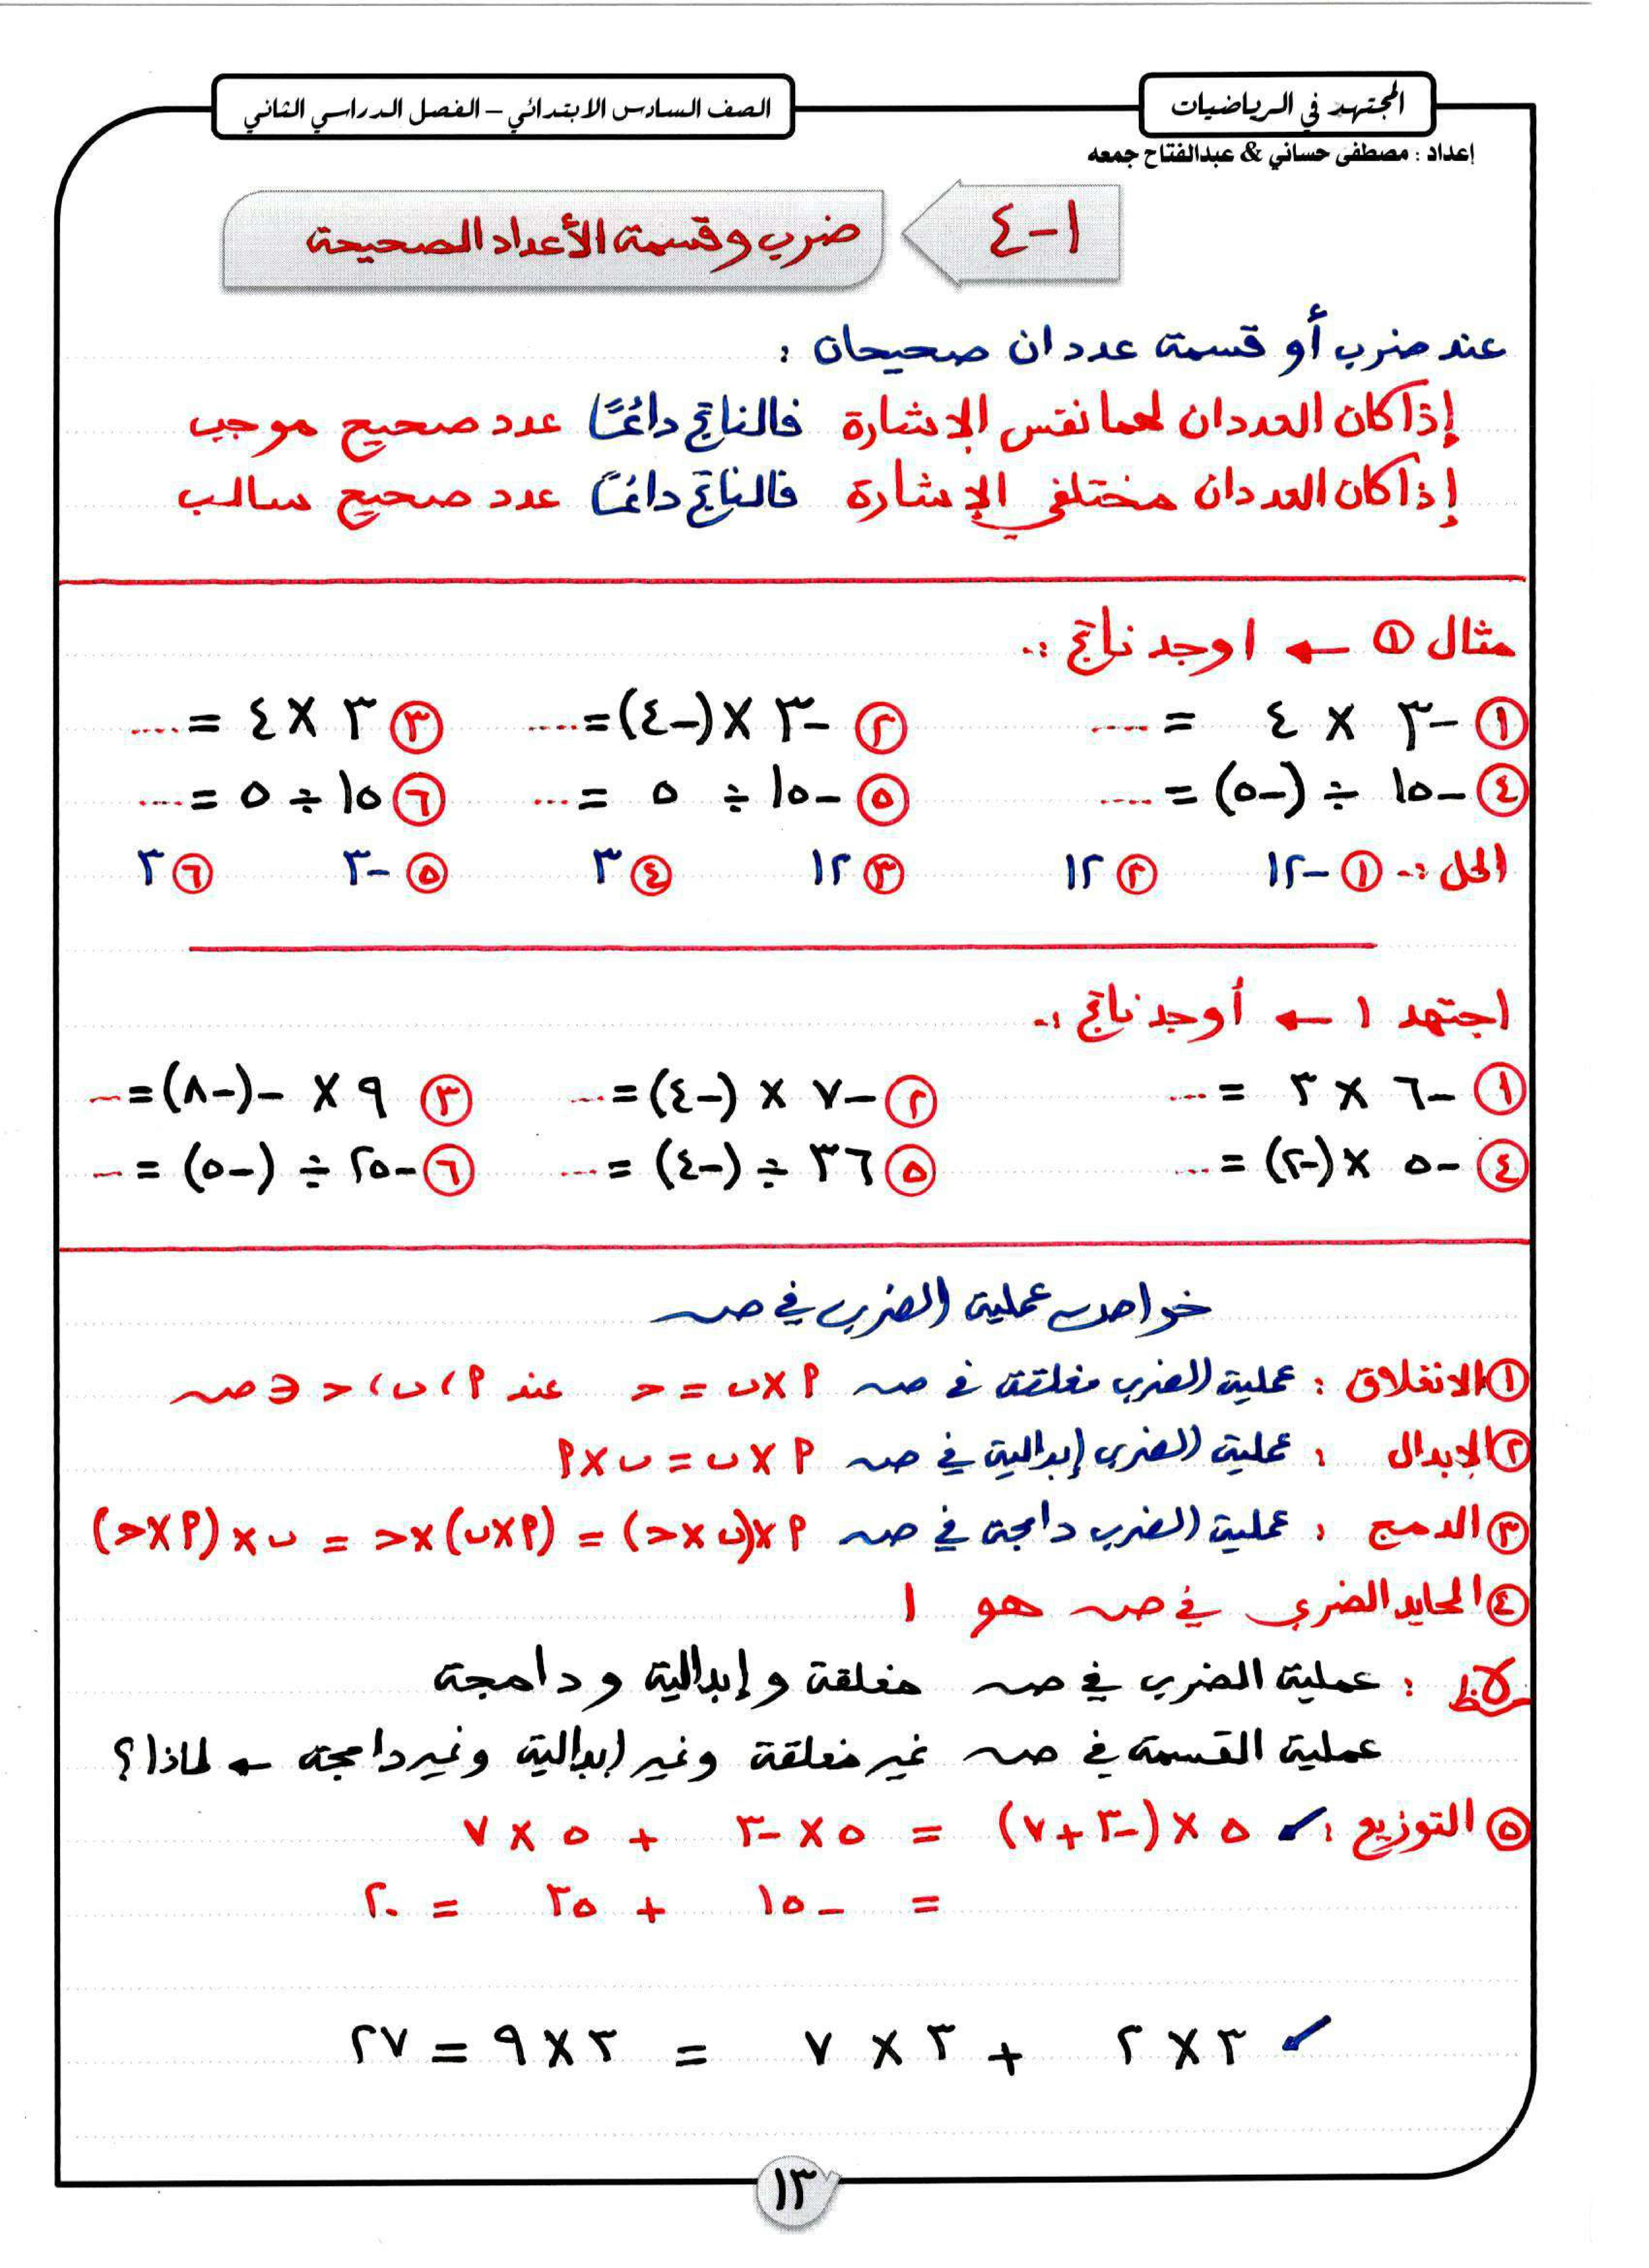 المجتهد في الرياضيات
الصف السادس الابتدائي – الفصل الدراسي الثاني
إعداد : مصطفى حساني & عبدالفتاح جمعه
١-٤
ضرب وقسمة الأعداد الصحيحة
عند ضرب أو قسمة عددان صحيحان :
إذا كان العددان لهما نفس الإشارة فالناتج دائمًا عدد صحيح موجب
إذا كان العددان مختلفي الإشارة فالناتج دائمًا عدد صحيح سالب
مثال ① ← اوجد ناتج :-
① -٣ × ٤ = .... ② -٣ × (-٤) = .... ③ ٣ × ٤ = ....
④ -١٥ ÷ (-٥) = .... ⑤ -١٥ ÷ ٥ = .... ⑥ ١٥ ÷ ٥ = ....
الحل :- ① -١٢ ② ١٢ ③ ١٢ ④ ٣ ⑤ -٣ ⑥ ٣
اجتهد ١ ← أوجد ناتج :-
① -٦ × ٣ = ... ② -٧ × (-٤) = ... ③ ٩ × -(-٨) = ...
④ -٥ × (-٢) = ... ⑤ ٣٦ ÷ (-٤) = ... ⑥ -٢٥ ÷ (-٥) = ...
خواص عملية الضرب في صـ
① الانغلاق : عملية الضرب مغلقة في صـ ٩ × ب = حـ عند ٩ ، ب ، حـ ∈ صـ
② الإبدال : عملية الضرب إبدالية في صـ ٩ × ب = ب × ٩
③ الدمج : عملية الضرب دامجة في صـ ٩ × (ب × حـ) = (٩ × ب) × حـ = ب × (٩ × حـ)
④ المحايد الضربي في صـ هو ١
لاحظ : عملية الضرب في صـ مغلقة وإبدالية ودامجة
عملية القسمة في صـ غير مغلقة وغير إبدالية وغير دامجة ← لماذا؟
⑤ التوزيع : ✓ ٥ × (-٣ + ٧) = ٥ × -٣ + ٥ × ٧
= -١٥ + ٣٥ = ٢٠
✓ ٣ × ٢ + ٣ × ٧ = ٣ × ٩ = ٢٧
١٣